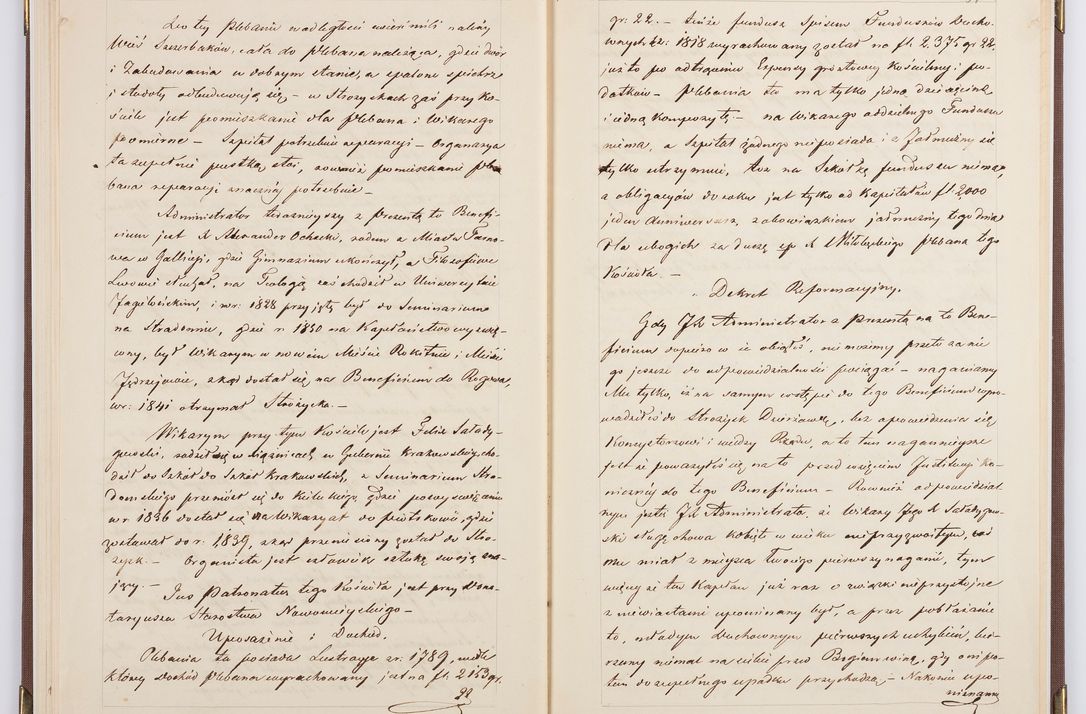 Do tey Plebanii w odległości ćwierć mili należy
Wieś Szczerbaków, cała do Plebana należąca, gdzie dwór
i Zabudowania w dobrym stanie, a spalone spichrz
i stodoły odbudowują się – w Strożyskach zaś przy Ko-
ściele jest pomieszkanie dla Plebana i Wikarego
pomierne – Szpital potrzebuie reparacyi – Organarya
ta zupełnie pustką stoi, równie pomieszkanie Ple-
bana reparacyi znacznéj potrzebuie –
Administrator teraźnieyszy z Prezentą to Benefi-
cium jest X Alexander Ochocki, rodem z Miasta Tarno-
wa w Gallicyi, gdzie Gimnazium ukończył, a Filozofiią
Lwowie słuchał, na Teologią zaś chodził w Uniwersytecie
Jagielońskim, i w r: 1828 przyięty był do Seminarium
na Stradomiu, gdzie r: 1830 na Kapłaństwo wyświę-
cony, był Wikarym w nowém Mieście Rokitnie i Mieście
Jędrzejowie, zkąd dostał się na Beneficium do Rogowa,
w r: 1841 otrzymał Stróżyska –
Wikarym przy tym Kościele jest Felix Sałady-
gowski, rodził się w Gubernii Krakowskiey, cho-
dził do Szkół do Szkół Krakowskich, z Seminarium Stra-
domskiego przeniósł się do Kieleckiego, gdzie poświęcaniu
w r: 1836 dostał się na Wikaryat do Piotrkowic, gdzie
zostawał do r: 1839, zkąd przeniesiony został do Stro-
życk. – Organista jest człowiek sztukę swoją zna-
jący. – Jus Patronatus tego Kościoła jest przy Dona-
taryusza Starostwa Nowomieyskiego –
Uposażenie i Dochód.
Plebania ta posiada Lustracye z r: 1789, wedle
któréy Dochód Plebana wyrachowany jest na fl. 2153 gr.
22
gr: 22. – Tenże fundusz Spisem Funduszów Ducho-
wnych z r: 1818 wyrachowany został na fl. 2,375 gr 22.
już to po odtrąceniu Expensy gruntowey Kościelney i po-
datków – Plebania ta ma tylko jedną dziesięcinę
i iedną Kompozytę – na Wikarego oddzielnego Funduszu
niema, a Szpital żadnego nieposiada i z Jałmużny się
tylko utrzymuie, też na Szkółkę funduszu niema,
a obligacyów do roku jest tylko od Kapitałów fl 2,000
jeden Anniwersarz, z obowiązkiem jałmużny tego dnia
dla ubogich za duszę śp X Witoluskiego Plebana tego
Kościoła. –
Dekret Reformacyjny.
Gdy JX Administrator z Prezentą na to Bene-
ficium dopiero w ie obiął, niemożemy przeto za nie-
go jeszcze do odpowiedzialności pociągać – naganiamy
Mu tylko, iż na samym wstępie do tego Beneficium wpro-
wadził do Strożysk Dzierżawcę, bez opowiedzenia się
Konsystorzowi i wiedzy Rządu, a to tém naganniejsze
jest iż poważył się na to przed wzięciem Instytucyi Ka-
nonicznéj do tego Beneficium – Również odpowiedzial-
nym jest JX Administrator, że Wikary Jego X Saładygow-
ski sługę chowa kobiétę w wieku nieprzyzwoitym, coś
mu miał z miejsca Twoiego pierwszy naganić, tym
więcej iż ten Kapłan już raz o związki nieprzystojne
z niewiastami upominany był, a przez pobłażanie
to, młodym Duchownym pierwszych uchybień, bie-
rzemy niemal na siebie przed Bogiem winę, gdy oni po-
tém do zupełnego upadku przychodzą – Nakoniec upo-
minamy